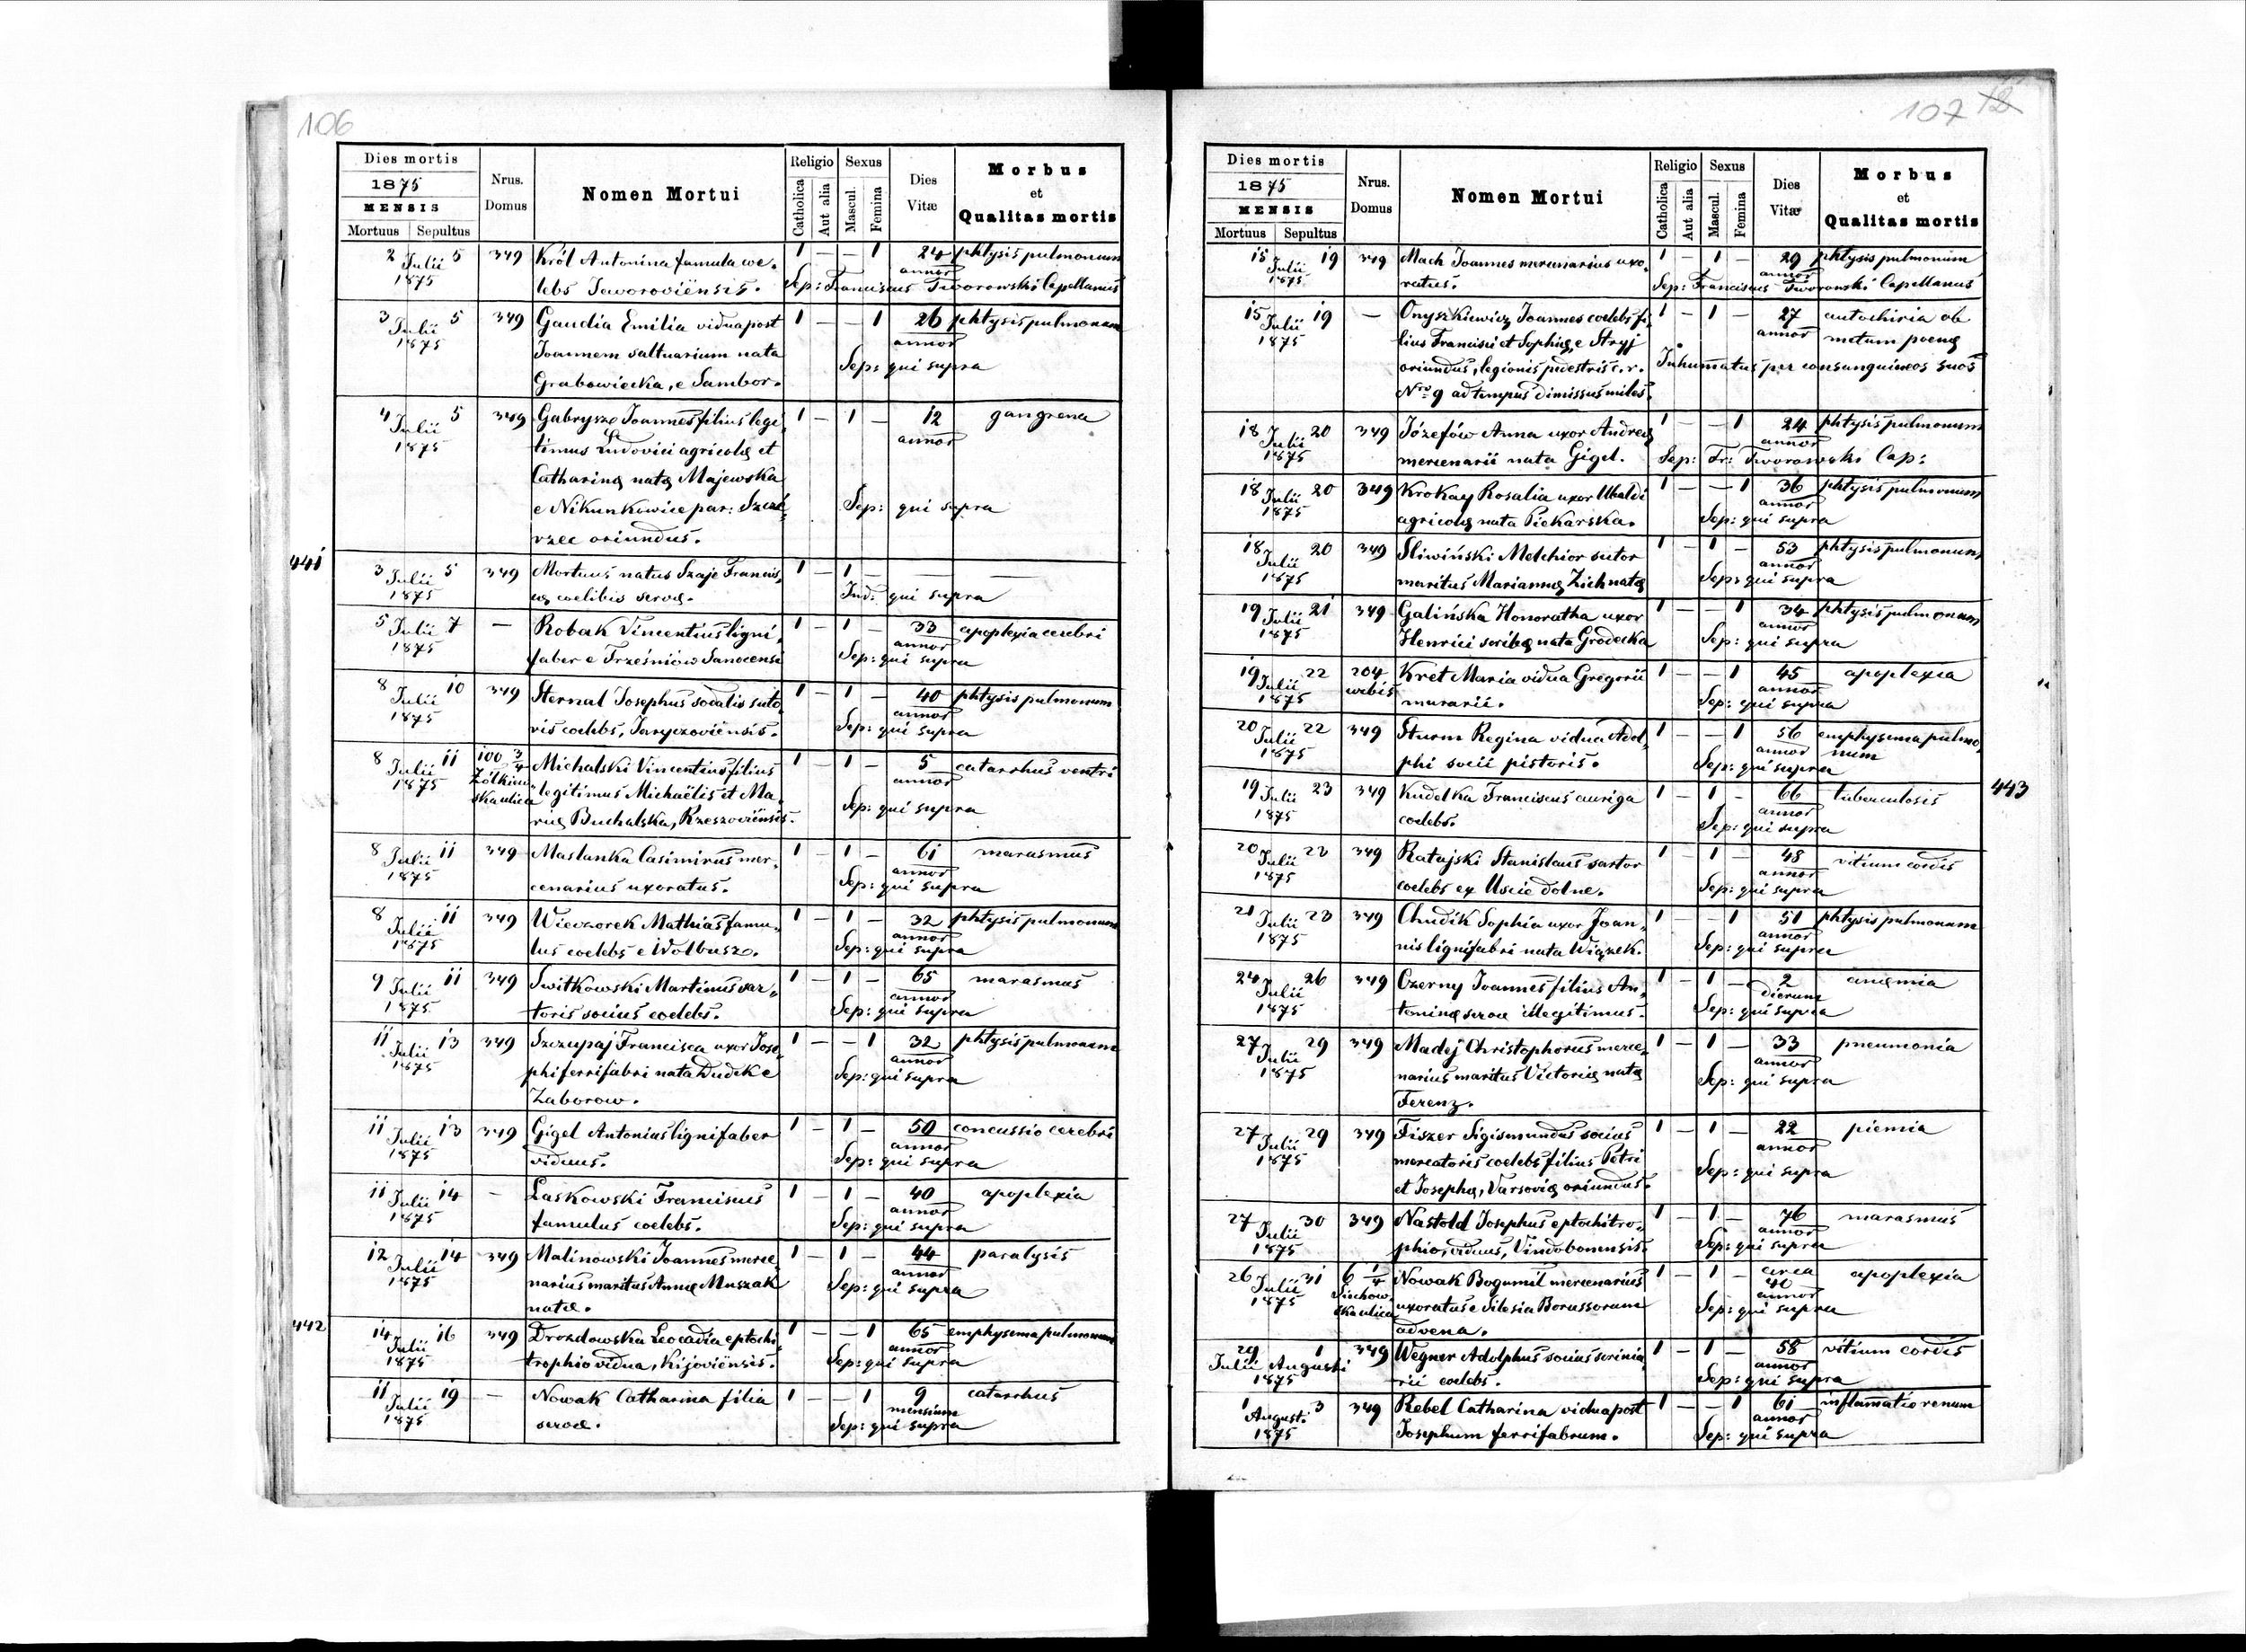 106
Dies mortis
1875
MENSIS
Mortuus Sepultus
Nrus. Domus
Nomen Mortui
Religio
Catholica
Aut alia
Sexus
Mascul.
Femina
Dies Vitæ
Morbus et Qualitas mortis
2 Julii 5 349 Król Antonina famula coe- 1 — — 1 24 phtysis pulmonum
1875 lebs Jaworoviënsis. annor
Sep: Franciscus Tworowski Capellanus
3 Julii 5 349 Gaudia Emilia vidua post 1 — — 1 26 phtysis pulmonum
1875 Joannem saltuarium nata annor
Grabowiecka, e Sambor. Sep: qui supra
4 Julii 5 349 Gabrysz Joannes filius legi- 1 — 1 — 12 gangrena
1875 timus Ludovici agricolę et annor
Catharinę natę Majewska
e Nikunkowice par: Sep: qui supra
rzec oriundus.
441
3 Julii 5 349 Mortuus natus Szaje Francis- 1 — 1 — — —
1875 cę coelibis servę. Ind: qui supra
5 Julii 7 — Robak Vincentius ligni- 1 — 1 — 33 apoplexia cerebri
1875 faber e Trześniów Sanocensi annor
Sep: qui supra
8 Julii 10 349 Sternal Josephus sodalis suto- 1 — 1 — 40 phtysis pulmonum
1875 ris coelebs, Jaryczoviënsis. annor
Sep: qui supra
8 Julii 11 100 3/4 Michalski Vincentius filius 1 — 1 — 5 catarrhus ventri
1875 Żółkiew- legitimus Michaëlis et Ma- annor
ska ulica rię Buchalska, Rzeszoviënsis. Sep: qui supra
8 Julii 11 349 Maslanka Casimirus mer- 1 — 1 — 61 marasmus
1875 cenarius uxoratus. annor
Sep: qui supra
8 Julii 11 349 Wieczorek Mathias famu- 1 — 1 — 32 phtysis pulmonum
1875 lus coelebs e Wolbusz. annor
Sep: qui supra
9 Julii 11 349 Switkowski Martinus sar- 1 — 1 — 65 marasmus
1875 toris socius coelebs. annor
Sep: qui supra
11 Julii 13 349 Szczupaj Francisca uxor Jose- 1 — — 1 32 phtysis pulmonum
1875 phi ferrifabri nata Dudek e annor
Zaborow. Sep: qui supra
11 Julii 13 349 Gigel Antonius lignifaber 1 — 1 — 50 concussio cerebri
1875 viduus. annor
Sep: qui supra
11 Julii 14 — Laskowski Franciscus 1 — 1 — 40 apoplexia
1875 famulus coelebs. annor
Sep: qui supra
12 Julii 14 349 Malinowski Joannes merce- 1 — 1 — 44 paralysis
1875 narius maritus Annę Muszak annor
natæ. Sep: qui supra
442
14 Julii 16 349 Drozdowska Leocadia e ptochi- 1 — — 1 65 emphysema pulmonum
1875 trophio vidua, Kijoviënsis. annor
Sep: qui supra
11 Julii 19 — Nowak Catharina filia 1 — — 1 9 catarrhus
1875 servæ. mensium
Sep: qui supra
107
Dies mortis
1875
MENSIS
Mortuus Sepultus
Nrus. Domus
Nomen Mortui
Religio
Catholica
Aut alia
Sexus
Mascul.
Femina
Dies Vitæ
Morbus et Qualitas mortis
15 Julii 19 349 Mach Joannes mercenarius uxo- 1 — 1 — 29 phtysis pulmonum
1875 ratus. annor
Sep: Franciscus Tworowski Capellanus
15 Julii 19 — Onyszkiewicz Joannes coelebs fi- 1 — 1 — 27 autochiria ob
1875 lius Francisci et Sophię, e Stryj annor metum poenę
oriundus, legionis pedestris c. r. Inhumatus per consanguineos suos
Nro 9 ad tempus dimissus miles.
18 Julii 20 349 Józefów Anna uxor Andreę 1 — — 1 24 phtysis pulmonum
1875 mercenarii nata Gigel. annor
Sep: Fr: Tworowski Cap:
18 Julii 20 349 Krokay Rosalia uxor Ubaldi 1 — — 1 36 phtysis pulmonum
1875 agricolę nata Piekarska. annor
Sep: qui supra
18 Julii 20 349 Sliwiński Melchior sutor 1 — 1 — 53 phtysis pulmonum
1875 maritus Mariannę Zich natę annor
Sep: qui supra
19 Julii 21 349 Galińska Honoratha uxor 1 — — 1 34 phtysis pulmonum
1875 Henrici scribę nata Grodecka annor
Sep: qui supra
19 Julii 22 204 Kret Maria vidua Gregorii 1 — — 1 45 apoplexia
1875 urbis murarii. annor
Sep: qui supra
20 Julii 22 349 Sturm Regina vidua Adol- 1 — — 1 56 emphysema pulmo-
1875 phi socii pistoris. annor num
Sep: qui supra
443
19 Julii 23 349 Kudelka Franciscus auriga 1 — 1 — 66 tuberculosis
1875 coelebs. annor
Sep: qui supra
20 Julii 23 349 Ratajski Stanislaus sartor 1 — 1 — 48 vitium cordis
1875 coelebs ex Uscie dolne. annor
Sep: qui supra
21 Julii 23 349 Chudik Sophia uxor Joan- 1 — — 1 51 phtysis pulmonum
1875 nis lignifabri nata Wiązek. annor
Sep: qui supra
24 Julii 26 349 Czerny Joannes filius An- 1 — 1 — 2 anęmia
1875 toninę servæ illegitimus. dierum
Sep: qui supra
27 Julii 29 349 Madej Christophorus merce- 1 — 1 — 33 pneumonia
1875 narius maritus Victorię natę annor
Ferenz. Sep: qui supra
27 Julii 29 349 Fiszer Sigismundus socius 1 — 1 — 22 piemia
1875 mercatoris coelebs filius Petri annor
et Josephę, Varsovię oriundus. Sep: qui supra
27 Julii 30 349 Nastold Josephus e ptochitro- 1 — 1 — 76 marasmus
1875 phio, viduus, Vindobonensis. annor
Sep: qui supra
26 Julii 31 6 1/4 Nowak Bogumil mercenarius 1 — 1 — circa 40 apoplexia
1875 ska ulica uxoratus e Silesia Borussorum annor
advena. Sep: qui supra
29 1 349 Wegner Adolphus socius scrinia- 1 — 1 — 58 vitium cordis
Julii Augusti rii coelebs. annor
1875 Sep: qui supra
1 August: 3 349 Rebel Catharina vidua post 1 — — 1 61 inflammatio renum
1875 Josephum ferrifabrum. annor
Sep: qui supra